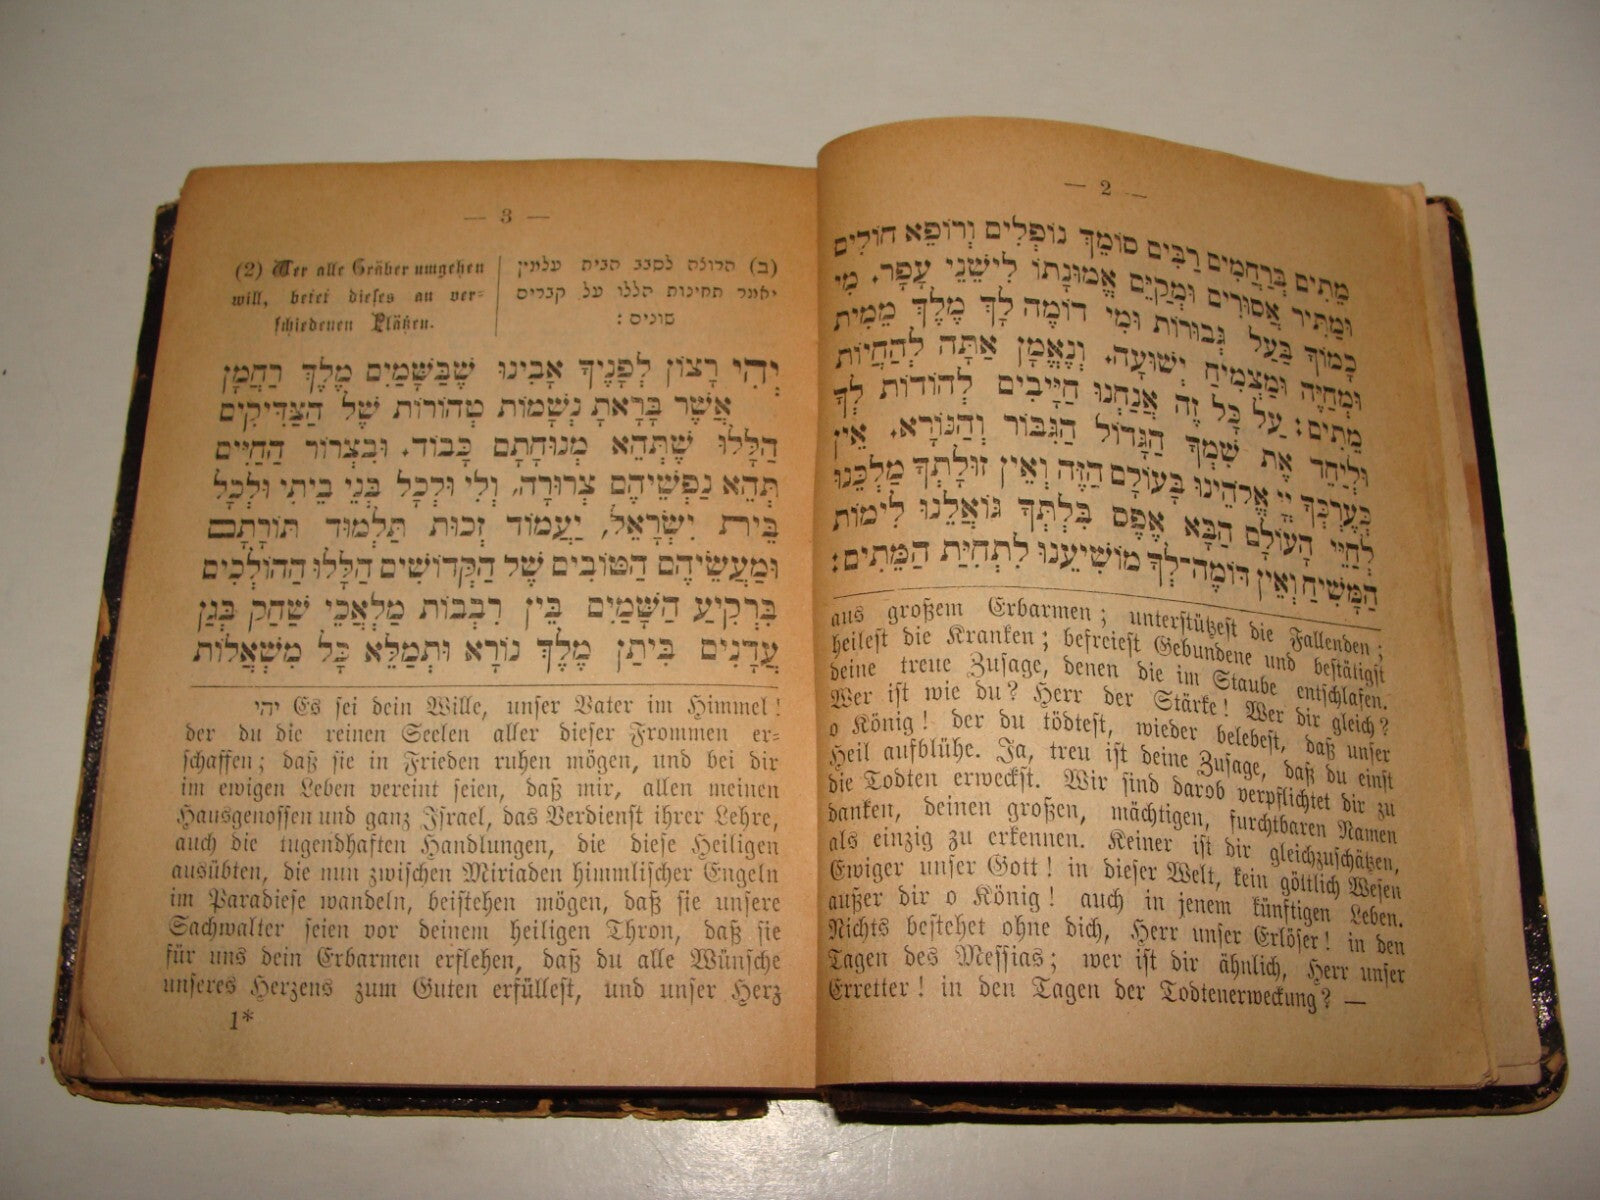 — 2 —
מֵתִים בְּרַחֲמִים רַבִּים סוֹמֵךְ נוֹפְלִים וְרוֹפֵא חוֹלִים
וּמַתִּיר אֲסוּרִים וּמְקַיֵּם אֱמוּנָתוֹ לִישֵׁנֵי עָפָר. מִי
כָמוֹךָ בַּעַל גְּבוּרוֹת וּמִי דוֹמֶה לָּךְ מֶלֶךְ מֵמִית
וּמְחַיֶּה וּמַצְמִיחַ יְשׁוּעָה. וְנֶאֱמָן אַתָּה לְהַחֲיוֹת
מֵתִים: עַל כָּל זֶה אֲנַחְנוּ חַיָּיבִים לְהוֹדוֹת לְךָ
וּלְיַחֵד אֶת שִׁמְךָ הַגָּדוֹל הַגִּבּוֹר וְהַנּוֹרָא. אֵין
כְּעֶרְכְּךָ יְיָ אֱלֹהֵינוּ בָּעוֹלָם הַזֶּה וְאֵין זוּלָתְךָ מַלְכֵּנוּ
לְחַיֵּי הָעוֹלָם הַבָּא אֶפֶס בִּלְתְּךָ גּוֹאֲלֵנוּ לִימוֹת
הַמָּשִׁיחַ וְאֵין דּוֹמֶה־לְּךָ מוֹשִׁיעֵנוּ לִתְחִיַּת הַמֵּתִים:
aus großem Erbarmen; unterstützest die Fallenden;
heilest die Kranken; befreiest Gebundene und bestätigst
deine treue Zusage, denen die im Staube entschlafen.
Wer ist wie du? Herr der Stärke! Wer dir gleich?
o König! der du tödtest, wieder belebest, daß unser
Heil aufblühe. Ja, treu ist deine Zusage, daß du einst
die Todten erweckst. Wir sind darob verpflichtet dir zu
danken, deinen großen, mächtigen, furchtbaren Namen
als einzig zu erkennen. Keiner ist dir gleichzuschätzen,
Ewiger unser Gott! in dieser Welt, kein göttlich Wesen
außer dir o König! auch in jenem künftigen Leben.
Nichts bestehet ohne dich, Herr unser Erlöser! in den
Tagen des Messias; wer ist dir ähnlich, Herr unser
Erretter! in den Tagen der Todtenerweckung? —
— 3 —
(ב) הרוצה לסבב הבית עלמין
יאמר תחינות הללו על קברים
שונים:
(2) Wer alle Gräber umgehen
will, betet dieses an ver-
schiedenen Plätzen.
יְהִי רָצוֹן לְפָנֶיךָ אָבִינוּ שֶׁבַּשָּׁמַיִם מֶלֶךְ רַחֲמָן
אֲשֶׁר בָּרָאתָ נְשָׁמוֹת טְהוֹרוֹת שֶׁל הַצַּדִּיקִים
הַלָּלוּ שֶׁתְּהֵא מְנוּחָתָם כָּבוֹד. וּבִצְרוֹר הַחַיִּים
תְּהֵא נַפְשֵׁיהֶם צְרוּרָה, וְלִי וּלְכָל בְּנֵי בֵיתִי וּלְכָל
בֵּית יִשְׂרָאֵל, יַעֲמוֹד זְכוּת תַּלְמוּד תּוֹרָתָם
וּמַעֲשֵׂיהֶם הַטּוֹבִים שֶׁל הַקְּדוֹשִׁים הַלָּלוּ הַהוֹלְכִים
בִּרְקִיעַ הַשָּׁמַיִם בֵּין רִבְבוֹת מַלְאֲכֵי שַׁחַק בְּגַן
עֲדָנִים בִּיתַן מֶלֶךְ נוֹרָא וּתְמַלֵּא כָּל מִשְׁאֲלוֹת
יהי Es sei dein Wille, unser Vater im Himmel!
der du die reinen Seelen aller dieser Frommen er-
schaffen; daß sie in Frieden ruhen mögen, und bei dir
im ewigen Leben vereint seien, daß mir, allen meinen
Hausgenossen und ganz Israel, das Verdienst ihrer Lehre,
auch die tugendhaften Handlungen, die diese Heiligen
ausübten, die nun zwischen Miriaden himmlischer Engeln
im Paradiese wandeln, beistehen mögen, daß sie unsere
Sachwalter seien vor deinem heiligen Thron, daß sie
für uns dein Erbarmen erflehen, daß du alle Wünsche
unseres Herzens zum Guten erfüllest, und unser Herz
1*